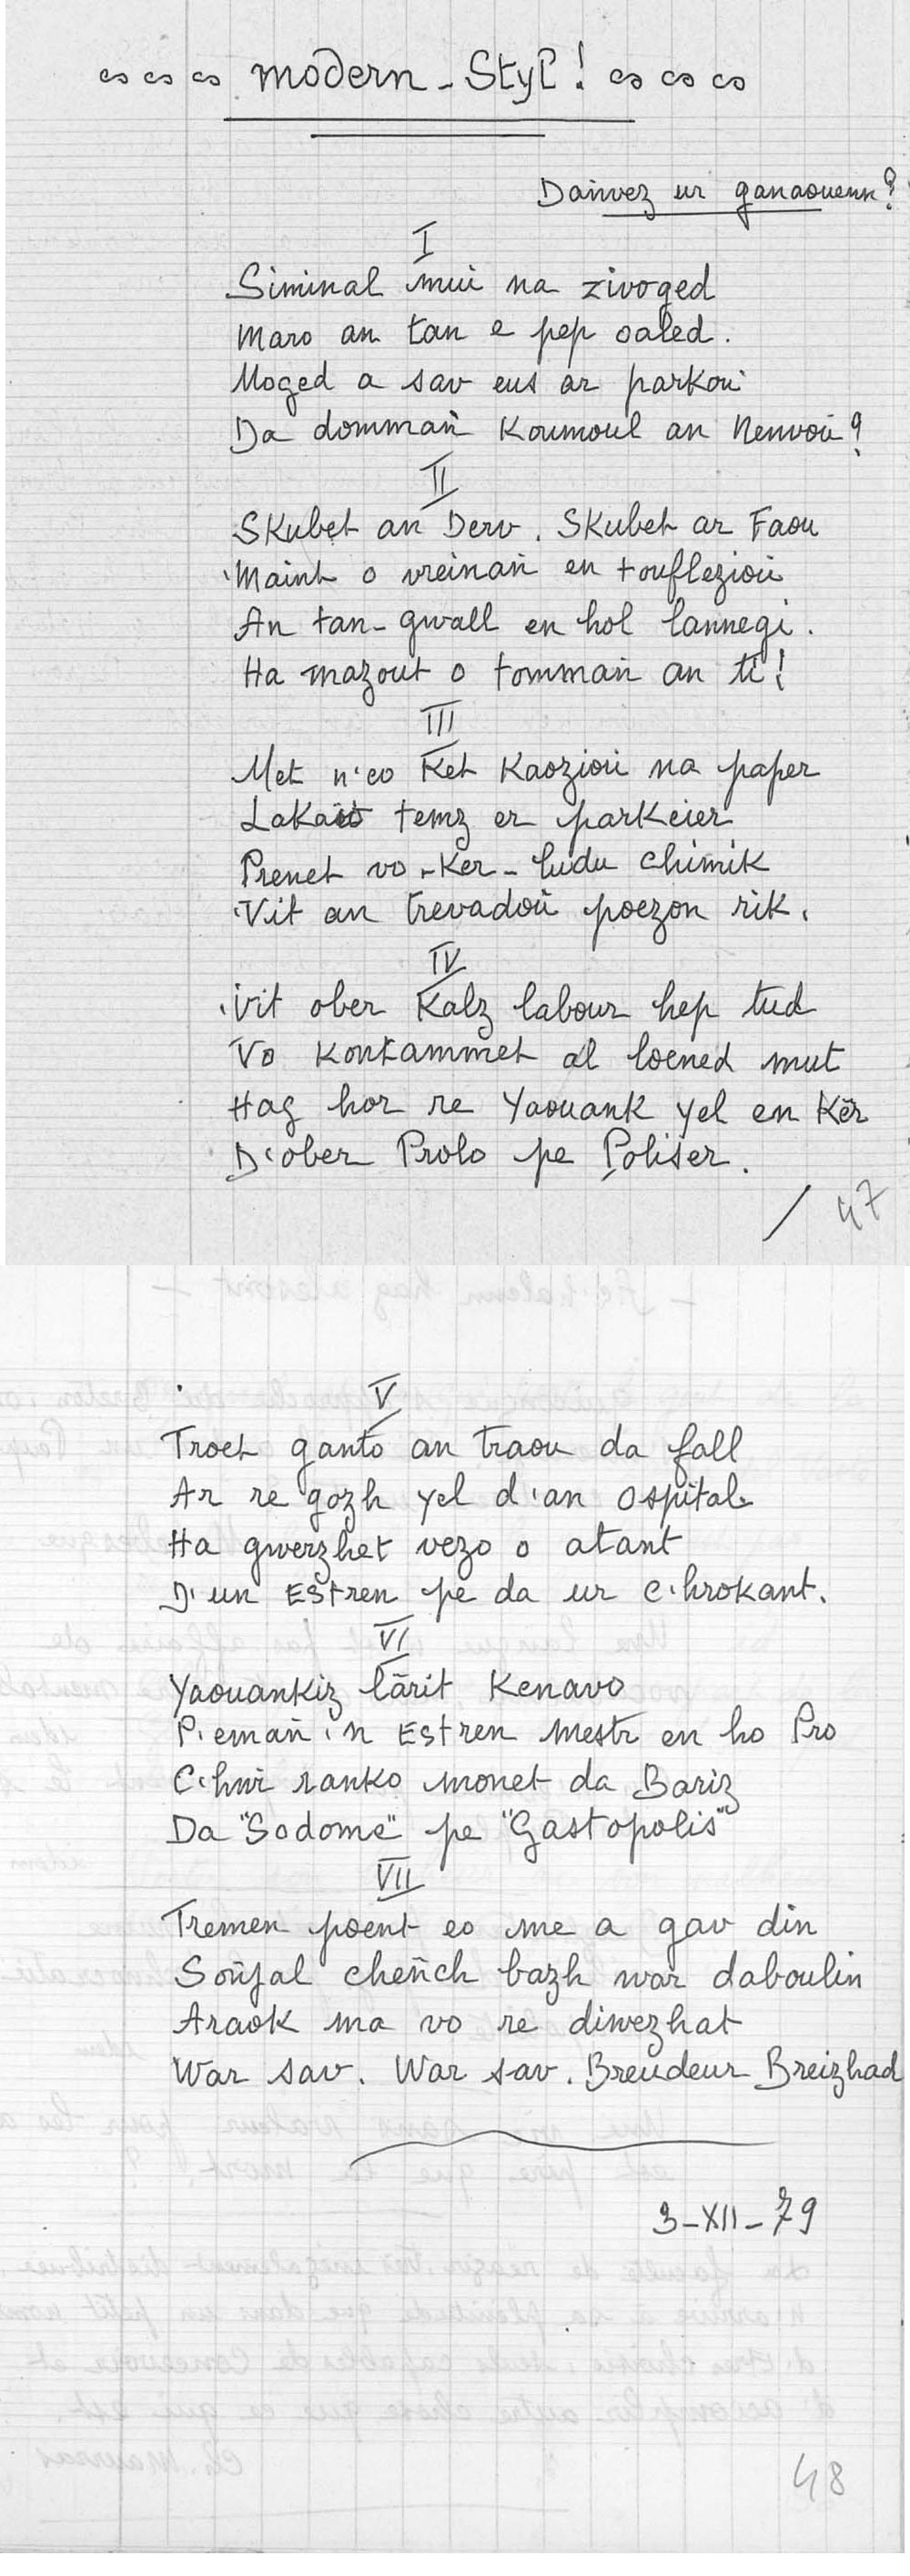 modern-Styl!
Danvez ur ganaouenn?
I
Siminal mui na zivoged
Maro an tan e pep oaled.
Moged a sav eus ar parkoù
Da dommañ Koumoul an Nenvoù?
II
Skubet an Derv. Skubet ar Faou
Maint o vreinañ en touflezioù
An tan-gwall en hol lannegi.
Ha mazout o tommañ an ti!
III
Met n'eo Ket Kaozioù na paper
Lakait temz er parkeier
Prenet vo-Ker-ludu chimik
Vit an trevadoù poezon rik.
IV
Vit ober Kalz labour hep tud
Vo Kontammet al loened mut
Hag hor re Yaouank yel en Kêr
D'ober Prolo pe Poliser.
/ 47
V
Troet ganto an traou da fall
Ar re gozh yel d'an Ospital
Ha gwerzhet vezo o atant
D'un Estren pe da ur c'hrokant.
VI
Yaouankiz lârit Kenavo
P'emañ 'n Estren mestr en ho Pro
C'hwi ranko monet da Bariz
Da "Sodome" pe "Gastopolis"
VII
Tremen poent eo me a gav din
Soñjal cheñch bazh war daboulin
Araok ma vo re diwezhat
War sav. War sav. Breudeur Breizhad
3-XII-79
48